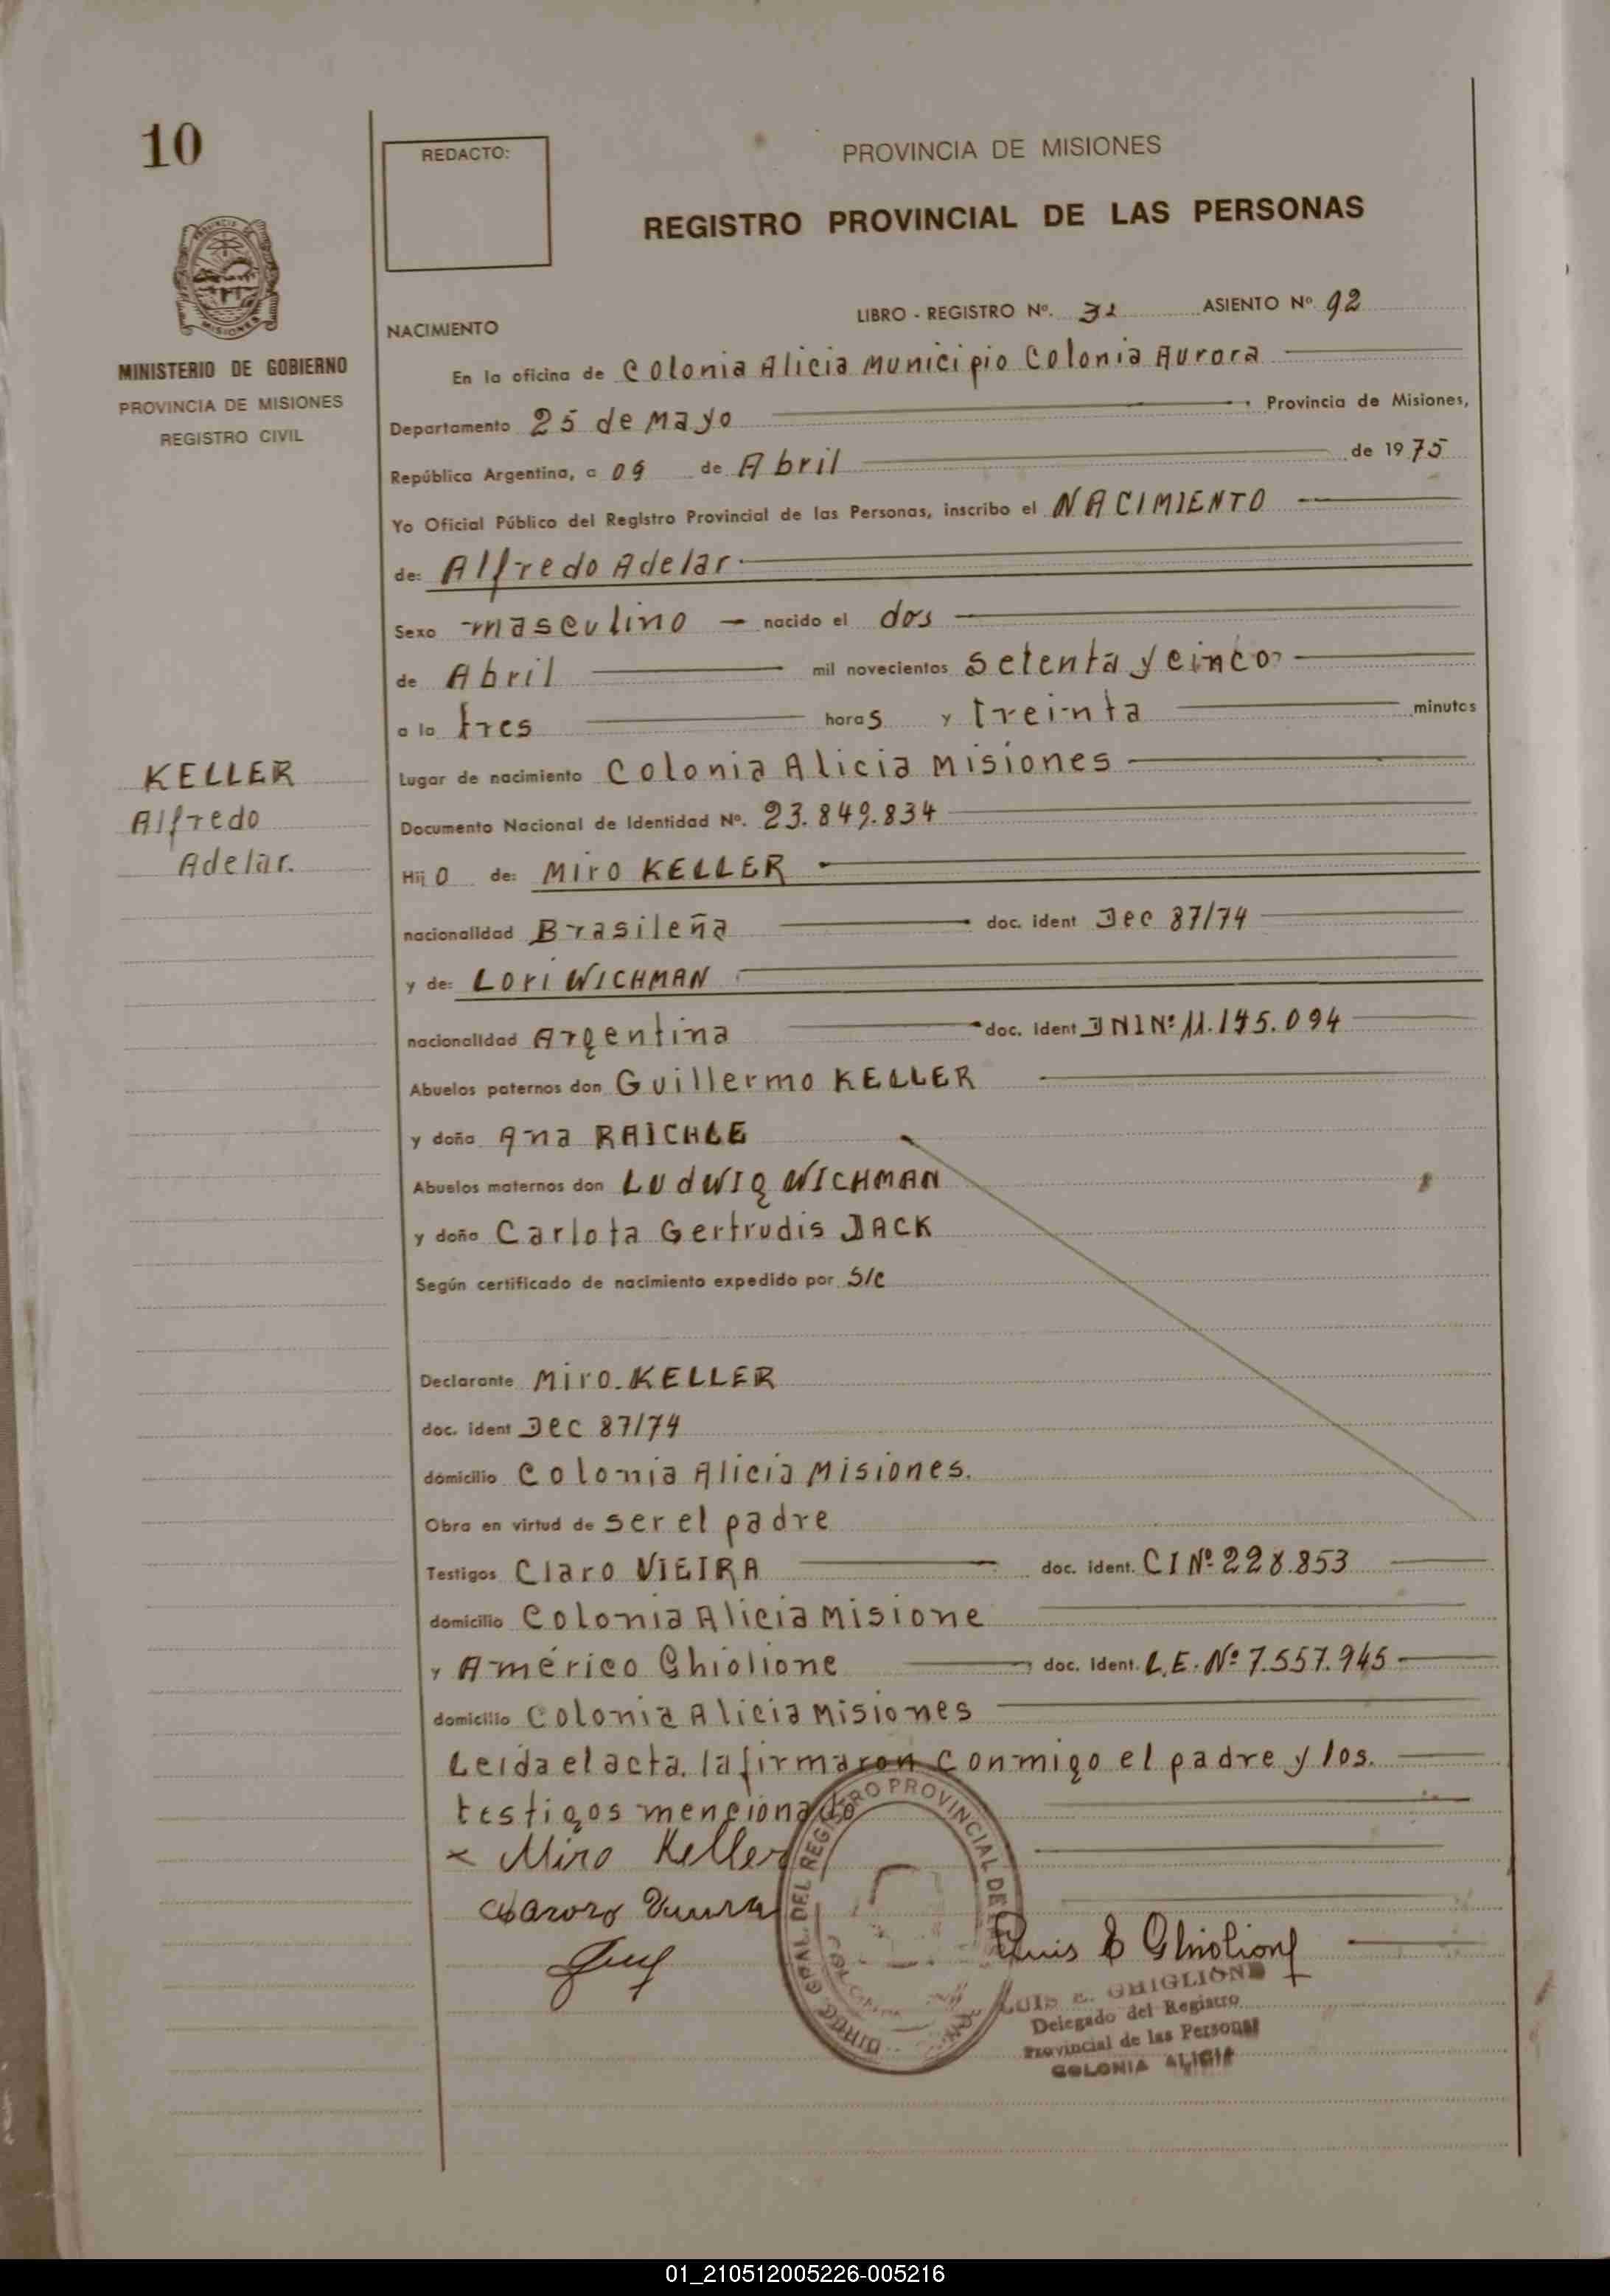 10
REDACTO:
PROVINCIA DE MISIONES
REGISTRO PROVINCIAL DE LAS PERSONAS
MINISTERIO DE GOBIERNO
PROVINCIA DE MISIONES
REGISTRO CIVIL
NACIMIENTO
LIBRO - REGISTRO Nº. 31 ASIENTO Nº 92
En la oficina de Colonia Alicia Municipio Colonia Aurora
Departamento 25 de Mayo Provincia de Misiones,
República Argentina, a 09 de Abril de 1975
Yo Oficial Público del Registro Provincial de las Personas, inscribo el NACIMIENTO
de: Alfredo Adelar
Sexo masculino nacido el dos
de Abril mil novecientos Setenta y cinco
a la tres horas y treinta minutos
KELLER
Alfredo
Adelar.
Lugar de nacimiento Colonia Alicia Misiones
Documento Nacional de Identidad Nº. 23.849.834
Hijo de: Miro KELLER
nacionalidad Brasileña doc. ident Dec 87/74
y de: Lori WICHMAN
nacionalidad Argentina doc. ident DNI Nº 11.145.094
Abuelos paternos don Guillermo KELLER
y doña Ana RAICHLE
Abuelos maternos don Ludwig WICHMAN
y doña Carlota Gertrudis JACK
Según certificado de nacimiento expedido por S/C
Declarante Miro KELLER
doc. ident Dec 87/74
domicilio Colonia Alicia Misiones.
Obra en virtud de ser el padre
Testigos Claro VIEIRA doc. ident. CI Nº 228.853
domicilio Colonia Alicia Misione
y Américo Ghiolione doc. ident. L.E. Nº 7.557.945
domicilio Colonia Alicia Misiones
Leida el acta, la firmaron conmigo el padre y los
testigos mencionado
x Miro Keller
Luis E Ghiolione
DIREC. GRAL. DEL REGISTRO PROVINCIAL DE
LUIS E. GHIGLIONE
Delegado del Registro
Provincial de las Personas
COLONIA ALICIA
01_210512005226-005216